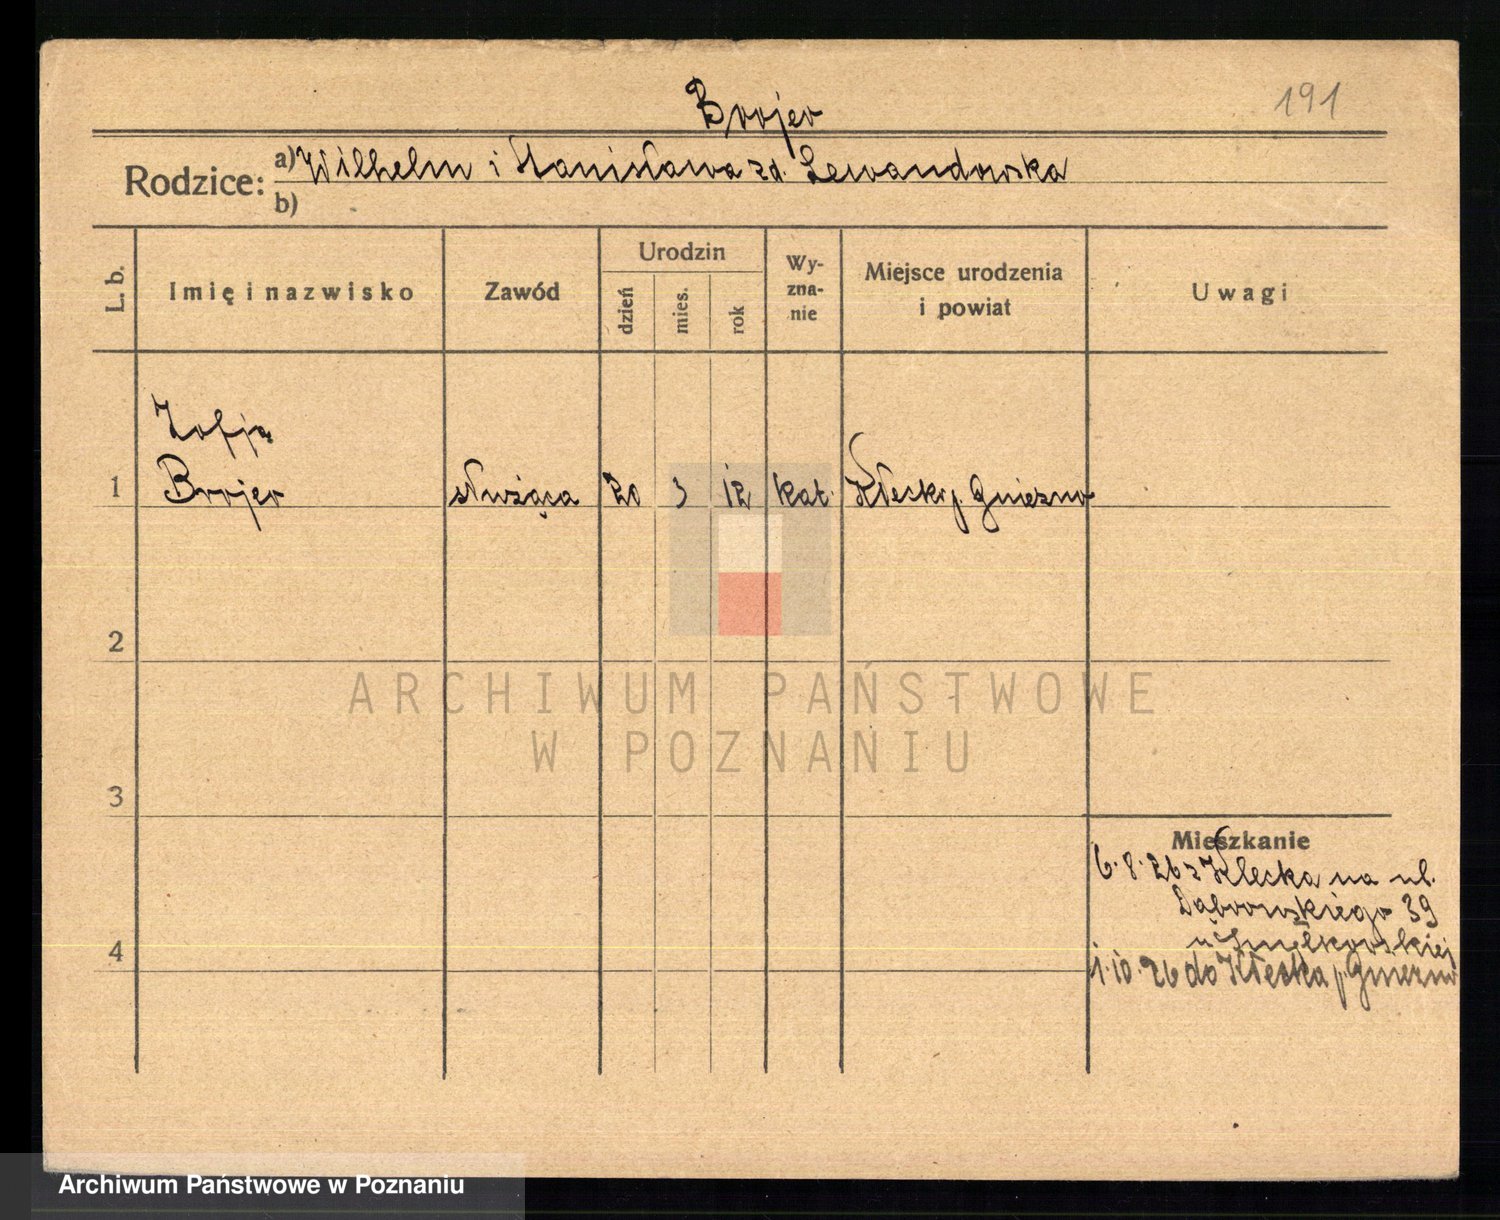 191
Brojer
Rodzice:
a) Wilhelm i Stanisława zd. Lewandowska
b)
L. b.
Imię i nazwisko
Zawód
Urodzin
dzień
mies.
rok
Wy-
zna-
nie
Miejsce urodzenia
i powiat
Uwagi
Zofja
1 Brojer służąca 20 3 12 kat. Kłecko p. Gniezno
2
ARCHIWUM PAŃSTWOWE
W POZNANIU
3
Mieszkanie
6.8.26 z Klecka na ul.
Dąbrowskiego 39
u
4
1.10.26 do Kłecka p. Gniezno
Archiwum Państwowe w Poznaniu